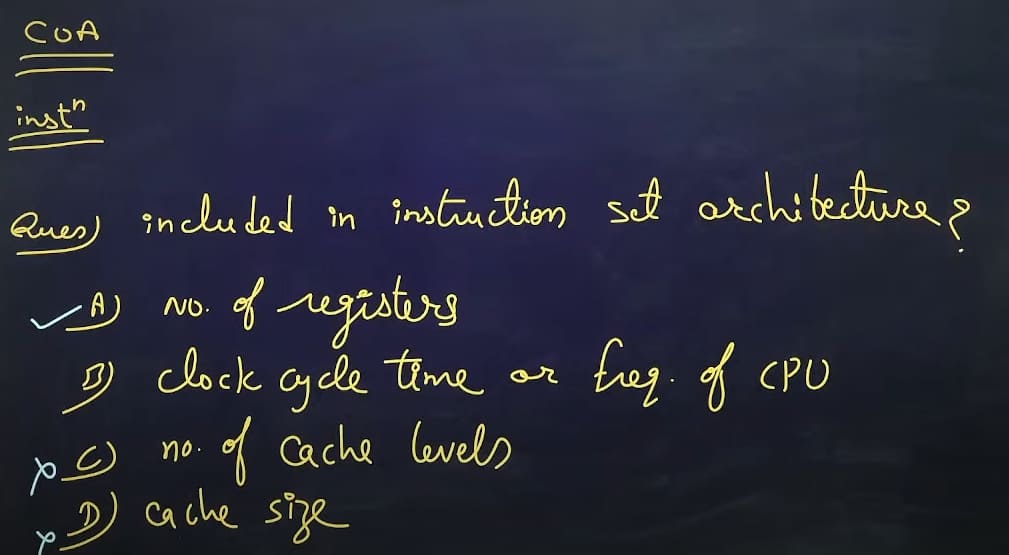 COA
instⁿ
Ques) included in instruction set architecture?
A) NO. of registers
B) clock cycle time or freq. of CPU
C) no. of cache levels
D) cache size